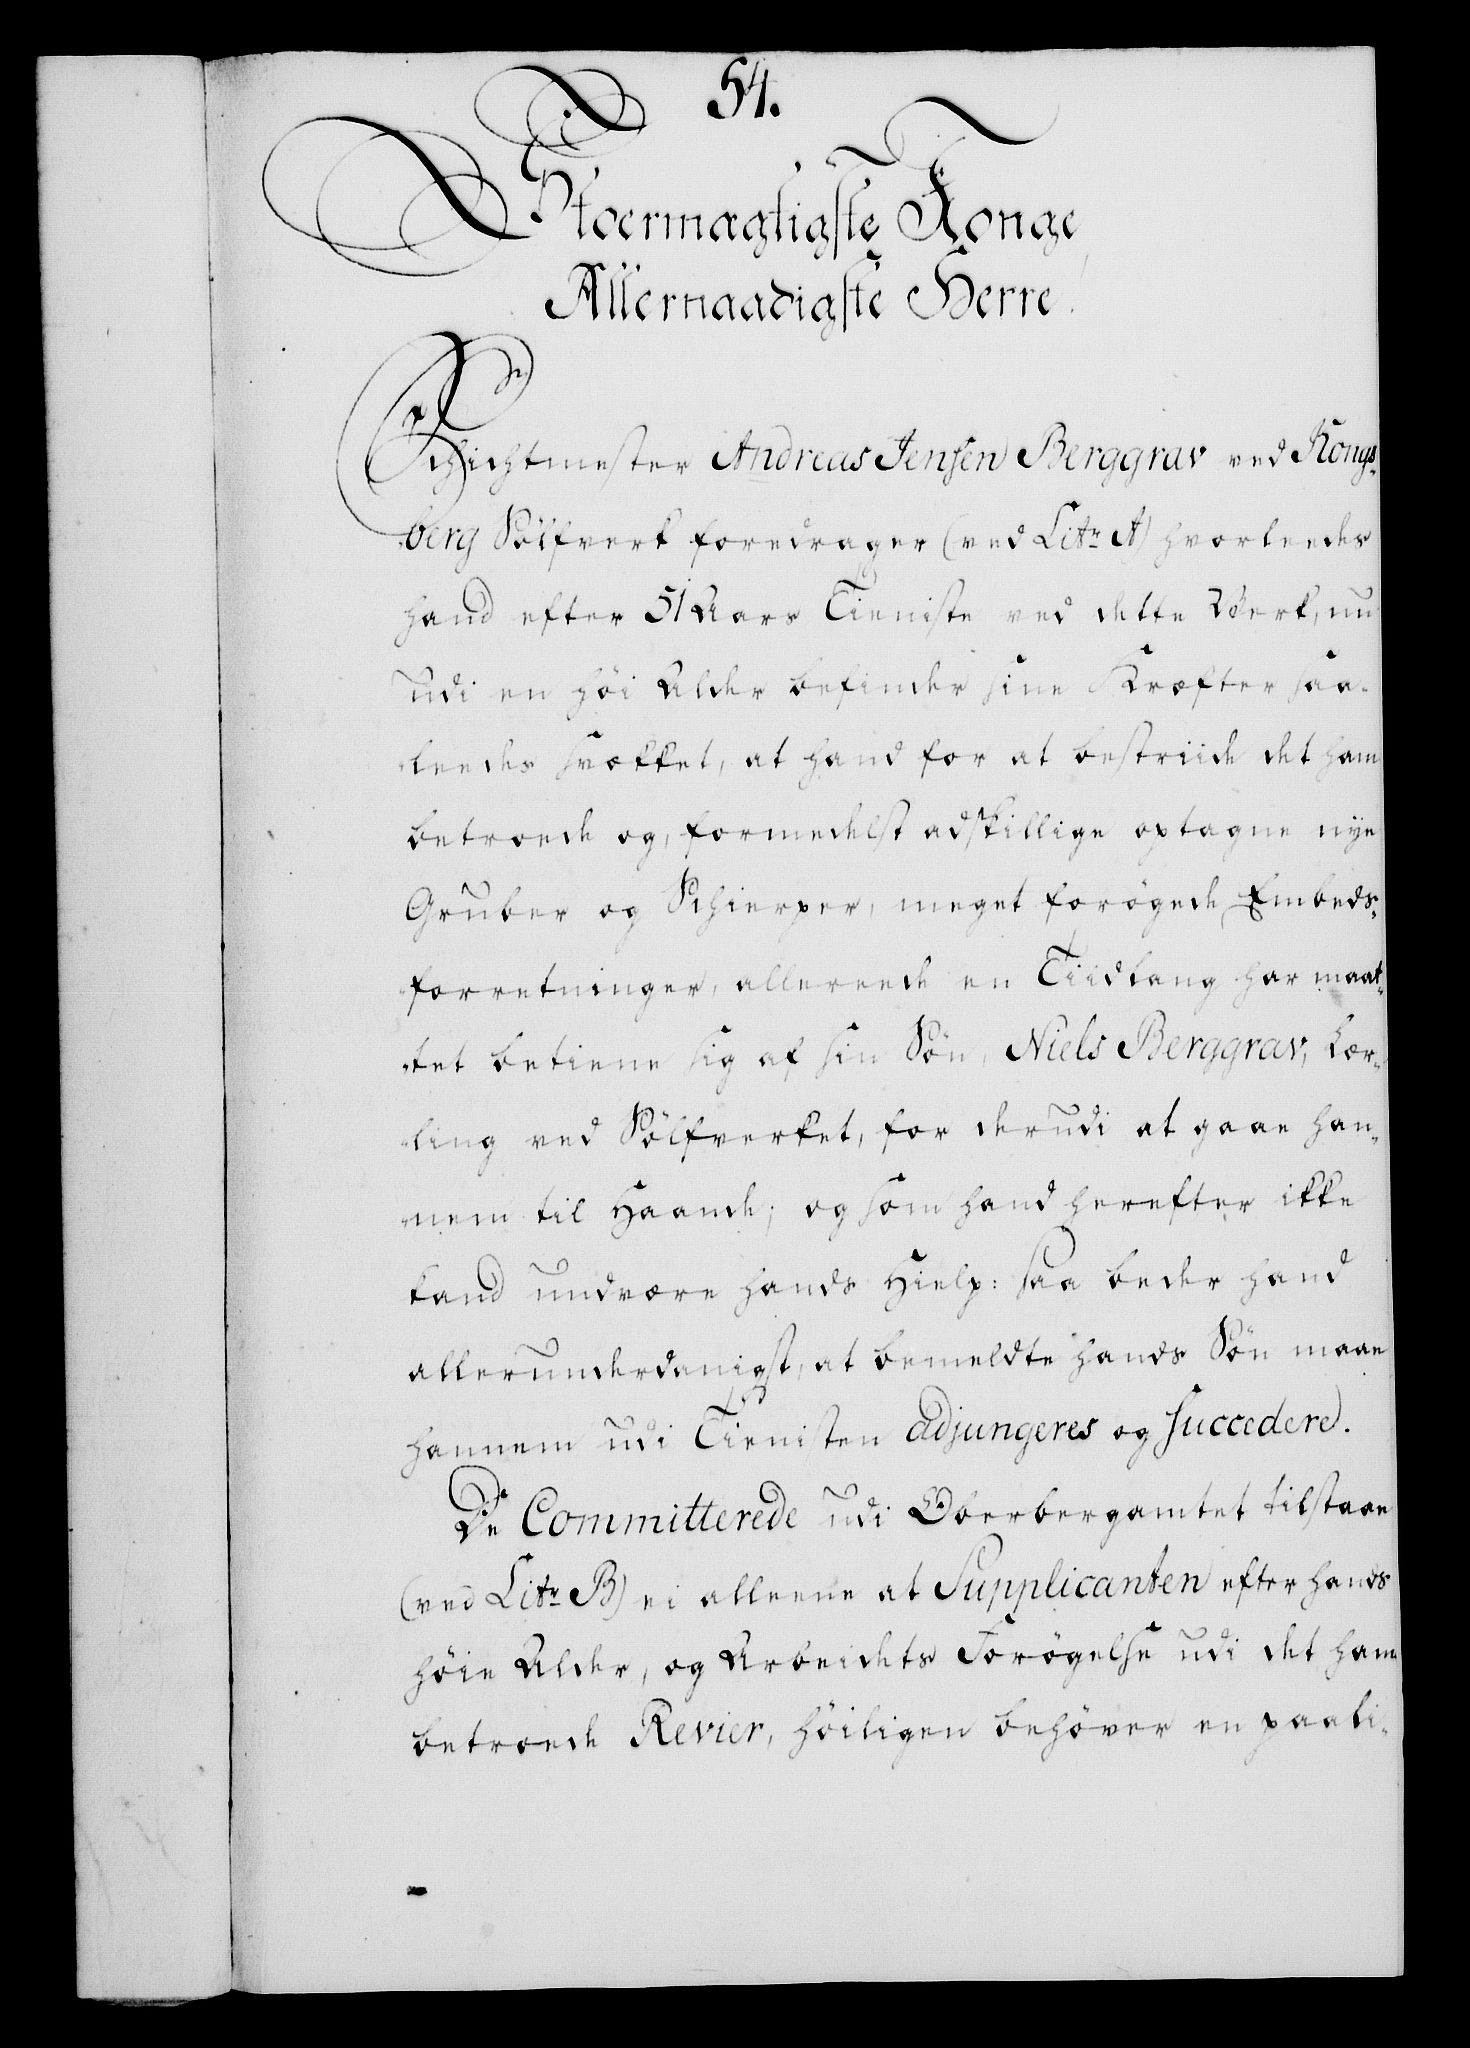 54.
Stoermægtigste Konge
Allernaadigste Herre.
Schichtmester Andreas Jensen Berggrav ved Kongs-
berg Sölfverk foredrager (ved Litr A) hvorleedes
hand efter 51 Aars Tieniste ved dette Verk, nu
udi en höi Alder befinder sine Kræfter saa-
leedes svækket, at hand for at bestriide det ham
betroede og, formedelst adskillige optagne nye
Gruber og Schierper, meget forögede Embeds-
forretninger, allereede en Tiidlang har maat-
tet betiene sig af sin Sön, Niels Berggrav, Lær-
ling ved Sölfverket, for derudi at gaae han-
nem til Haande; og som hand herefter ikke
kand undvære hands Hielp: saa beder hand
allerunderdanigst, at bemeldte hands Sön maae
hannem udi Tienisten adjungeres og succedere.
De Committerede udi Oberbergamtet tilstaae
(ved Litr B) ei alleene at Supplicanten efter hands
höie Alder, og Arbeidets Forögelse udi det ham
betroede Revier, höiligen behöver en paali-